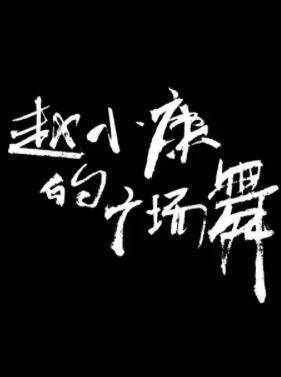 赵小康
的广场舞